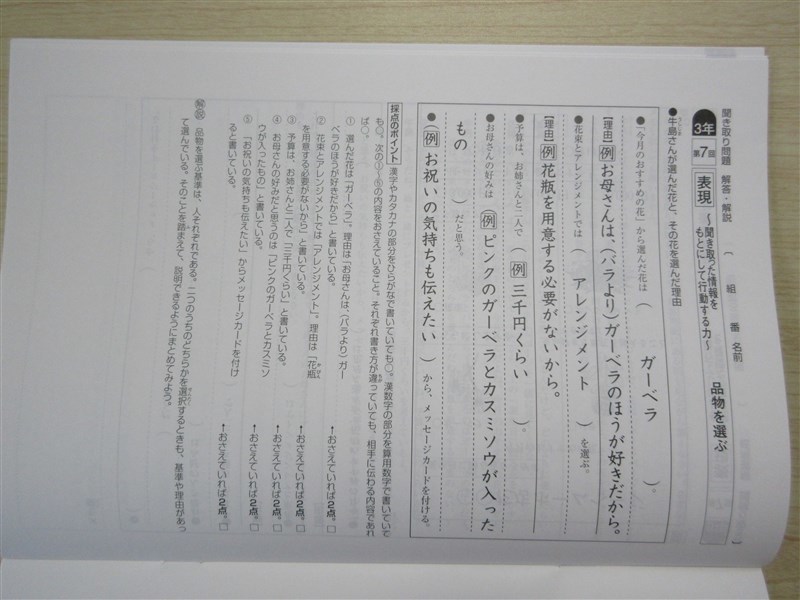 聞き取り問題 解答・解説
( 組 番 名前 )
3年
第7回
表現 ～聞き取った情報をもとにして行動する力～
品物を選ぶ
●牛島さんが選んだ花と、その花を選んだ理由
●「今月のおすすめの花」から選んだ花は( ガーベラ )。
【理由】例お母さんは、(バラより)ガーベラのほうが好きだから。
●花束とアレンジメントでは( アレンジメント )を選ぶ。
【理由】例花瓶を用意する必要がないから。
●予算は、お姉さんと二人で(例三千円くらい )。
●お母さんの好みは(例ピンクのガーベラとカスミソウが入った
もの )だと思う。
●(例お祝いの気持ちも伝えたい )から、メッセージカードを付ける。
採点のポイント 漢字やカタカナの部分をひらがなで書いていても○。漢数字の部分を算用数字で書いていて
も○。次の①～⑤の内容をおさえていること。それぞれ書き方が違っていても、相手に伝わる内容であれ
ば○。
① 選んだ花は「ガーベラ」。理由は「お母さんは、(バラより)ガー
ベラのほうが好きだから」と書いている。 →おさえていれば2点。□
② 花束とアレンジメントでは「アレンジメント」。理由は「花瓶
を用意する必要がないから」と書いている。 →おさえていれば2点。□
③ 予算は、お姉さんと二人で「三千円くらい」と書いている。 →おさえていれば2点。□
④ お母さんの好みだと思うのは「ピンクのガーベラとカスミソ
ウが入ったもの」と書いている。 →おさえていれば2点。□
⑤ 「お祝いの気持ちも伝えたい」からメッセージカードを付け
ると書いている。 →おさえていれば2点。□
解説 品物を選ぶ基準は、人それぞれである。二つのうちのどちらかを選択するときも、基準や理由があっ
て選んでいる。そのことを踏まえて、説明できるようにまとめてみよう。